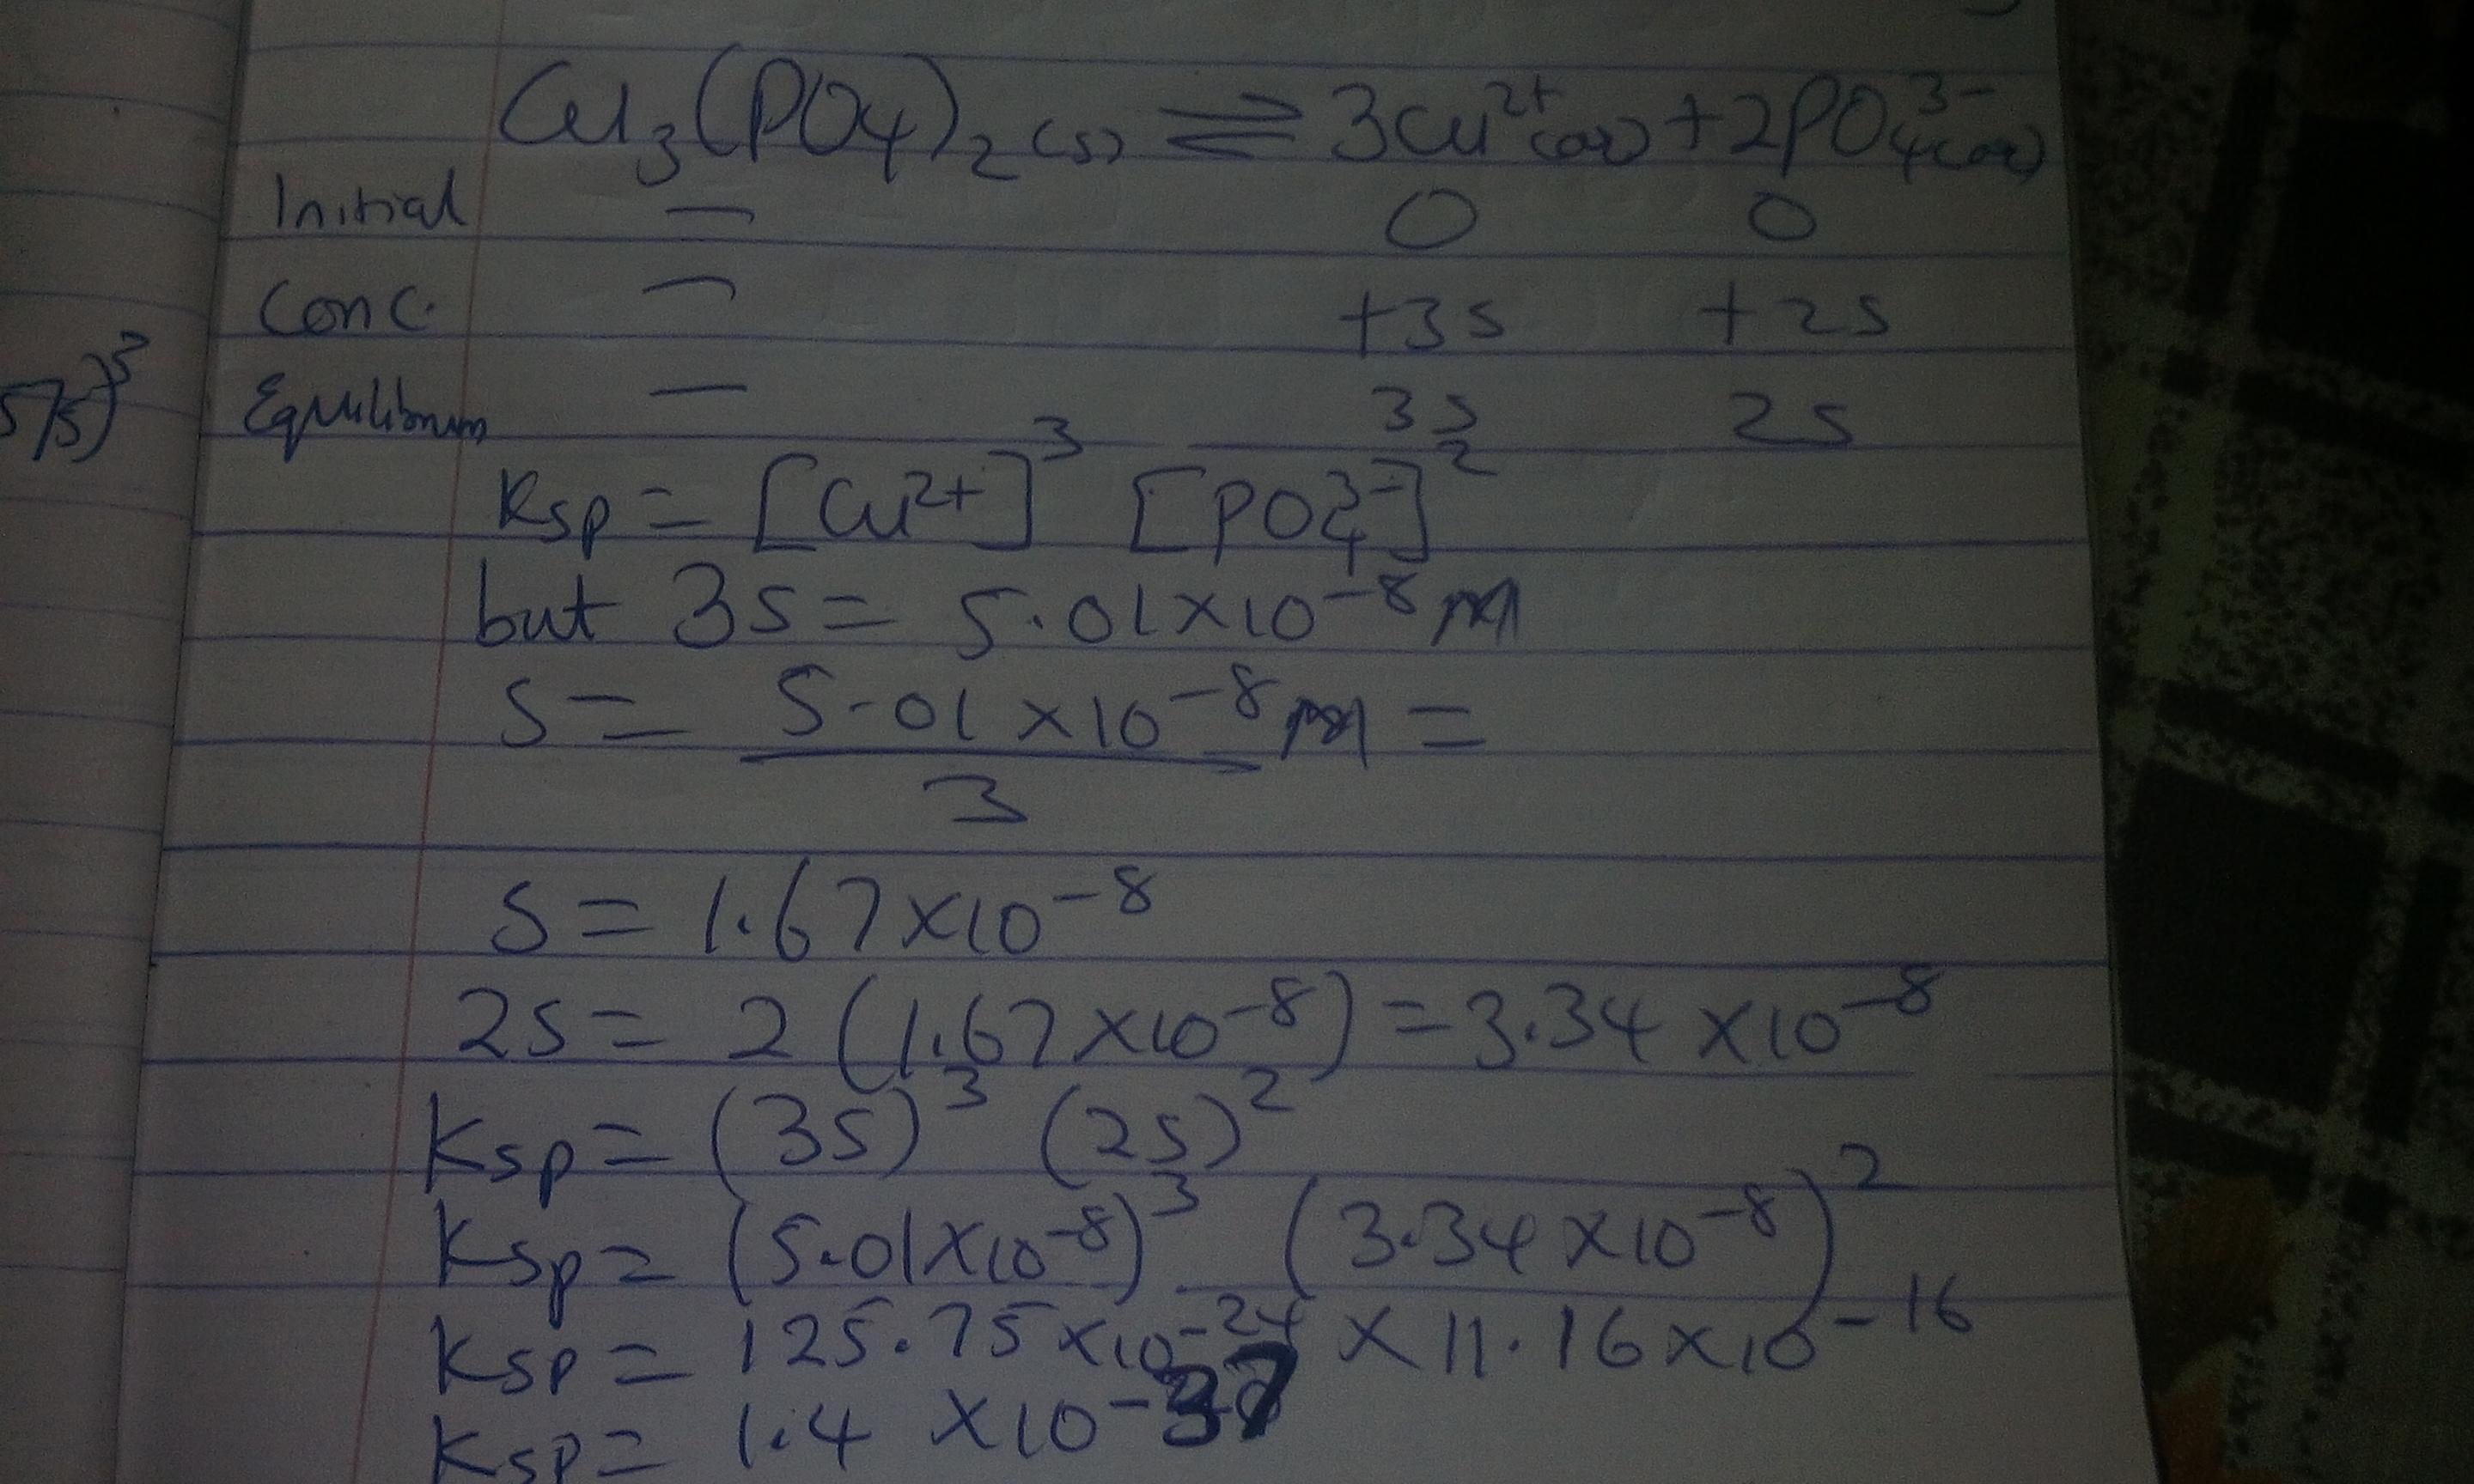 Cu₃(PO4)₂(s) ⇌ 3Cu²⁺(aq) + 2PO₄³⁻(aq)
Initial — 0 0
Conc. — +3s +2s
Equilibrum — 3s 2s
Ksp = [Cu²⁺]³ [PO₄³⁻]²
but 3s = 5.01×10⁻⁸ M
s = 5.01×10⁻⁸ M =
3
s = 1.67×10⁻⁸
2s = 2(1.67×10⁻⁸) = 3.34×10⁻⁸
Ksp = (3s)³ (2s)²
Ksp = (5.01×10⁻⁸)³ (3.34×10⁻⁸)²
Ksp = 125.75×10⁻²⁴ × 11.16×10⁻¹⁶
Ksp = 1.4 ×10⁻³⁷